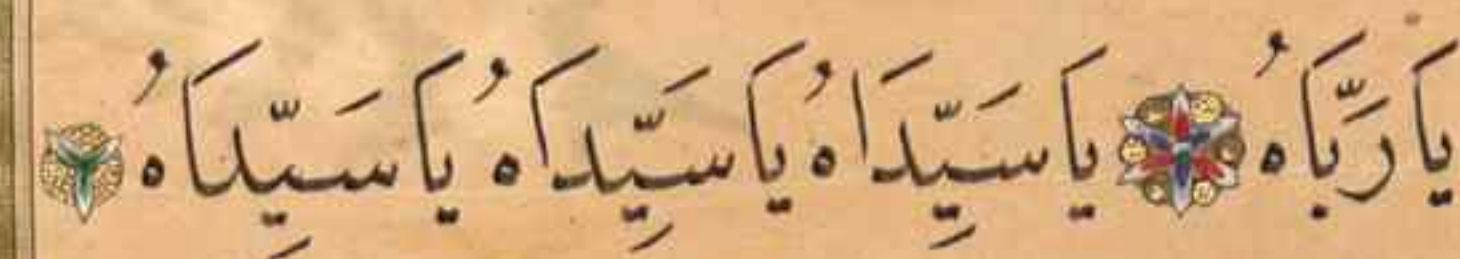 يَا رَبَّاهُ يَا سَيِّدَاهُ يَا سَيِّدَاهُ يَا سَيِّدَاهُ